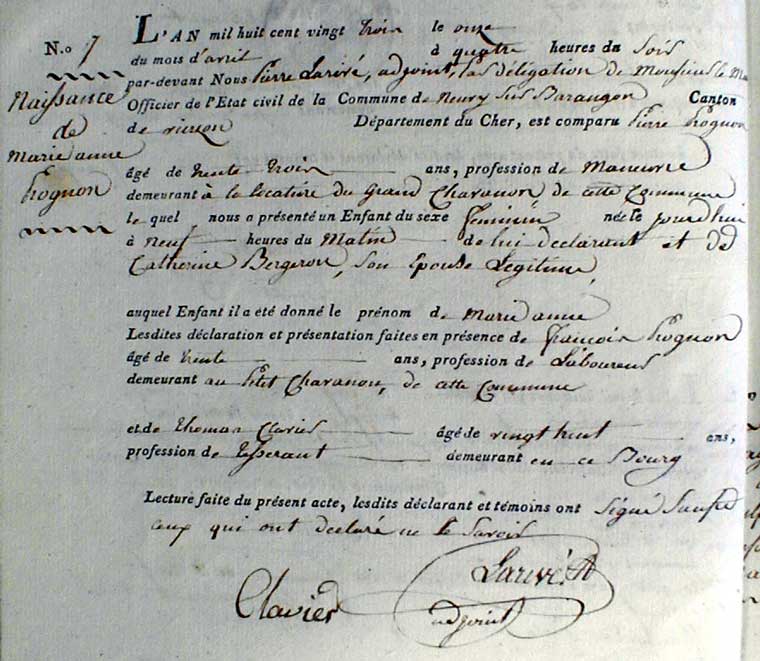 N.o 7
Naissance
de
Marie anne
Rognon
L'AN mil huit cent vingt trois le onze
du mois d'avril à quatre heures du Soir
par-devant Nous Pierre Larivé, adjoint, par délégation de Monsieur le
Officier de l'Etat civil de la Commune de Neuvy sur Barangon Canton
de vierzon Département du Cher, est comparu Pierre Rognon
âgé de trente trois ans, profession de Maneuvre
demeurant à la locature du Grand Chavanon de cette Commune
le quel nous a présenté un Enfant du sexe feminin née ce jourdhui
à neuf heures du Matin de lui declarant et de
Catherine Bergeron, son Epouse Legitime,
auquel Enfant il a été donné le prénom de Marie anne
Lesdites déclaration et présentation faites en présence de françois Rognon
âgé de trente ans, profession de Laboureur
demeurant au petit Chavanon, de cette Commune
et de thomas Clavier âgé de vingt huit ans,
profession de tisserant demeurant en ce Bourg
Lecture faite du présent acte, lesdits déclarant et témoins ont Signé Sauf
ceux qui ont declaré ne le Savoir
Clavier Larivé
adjoint